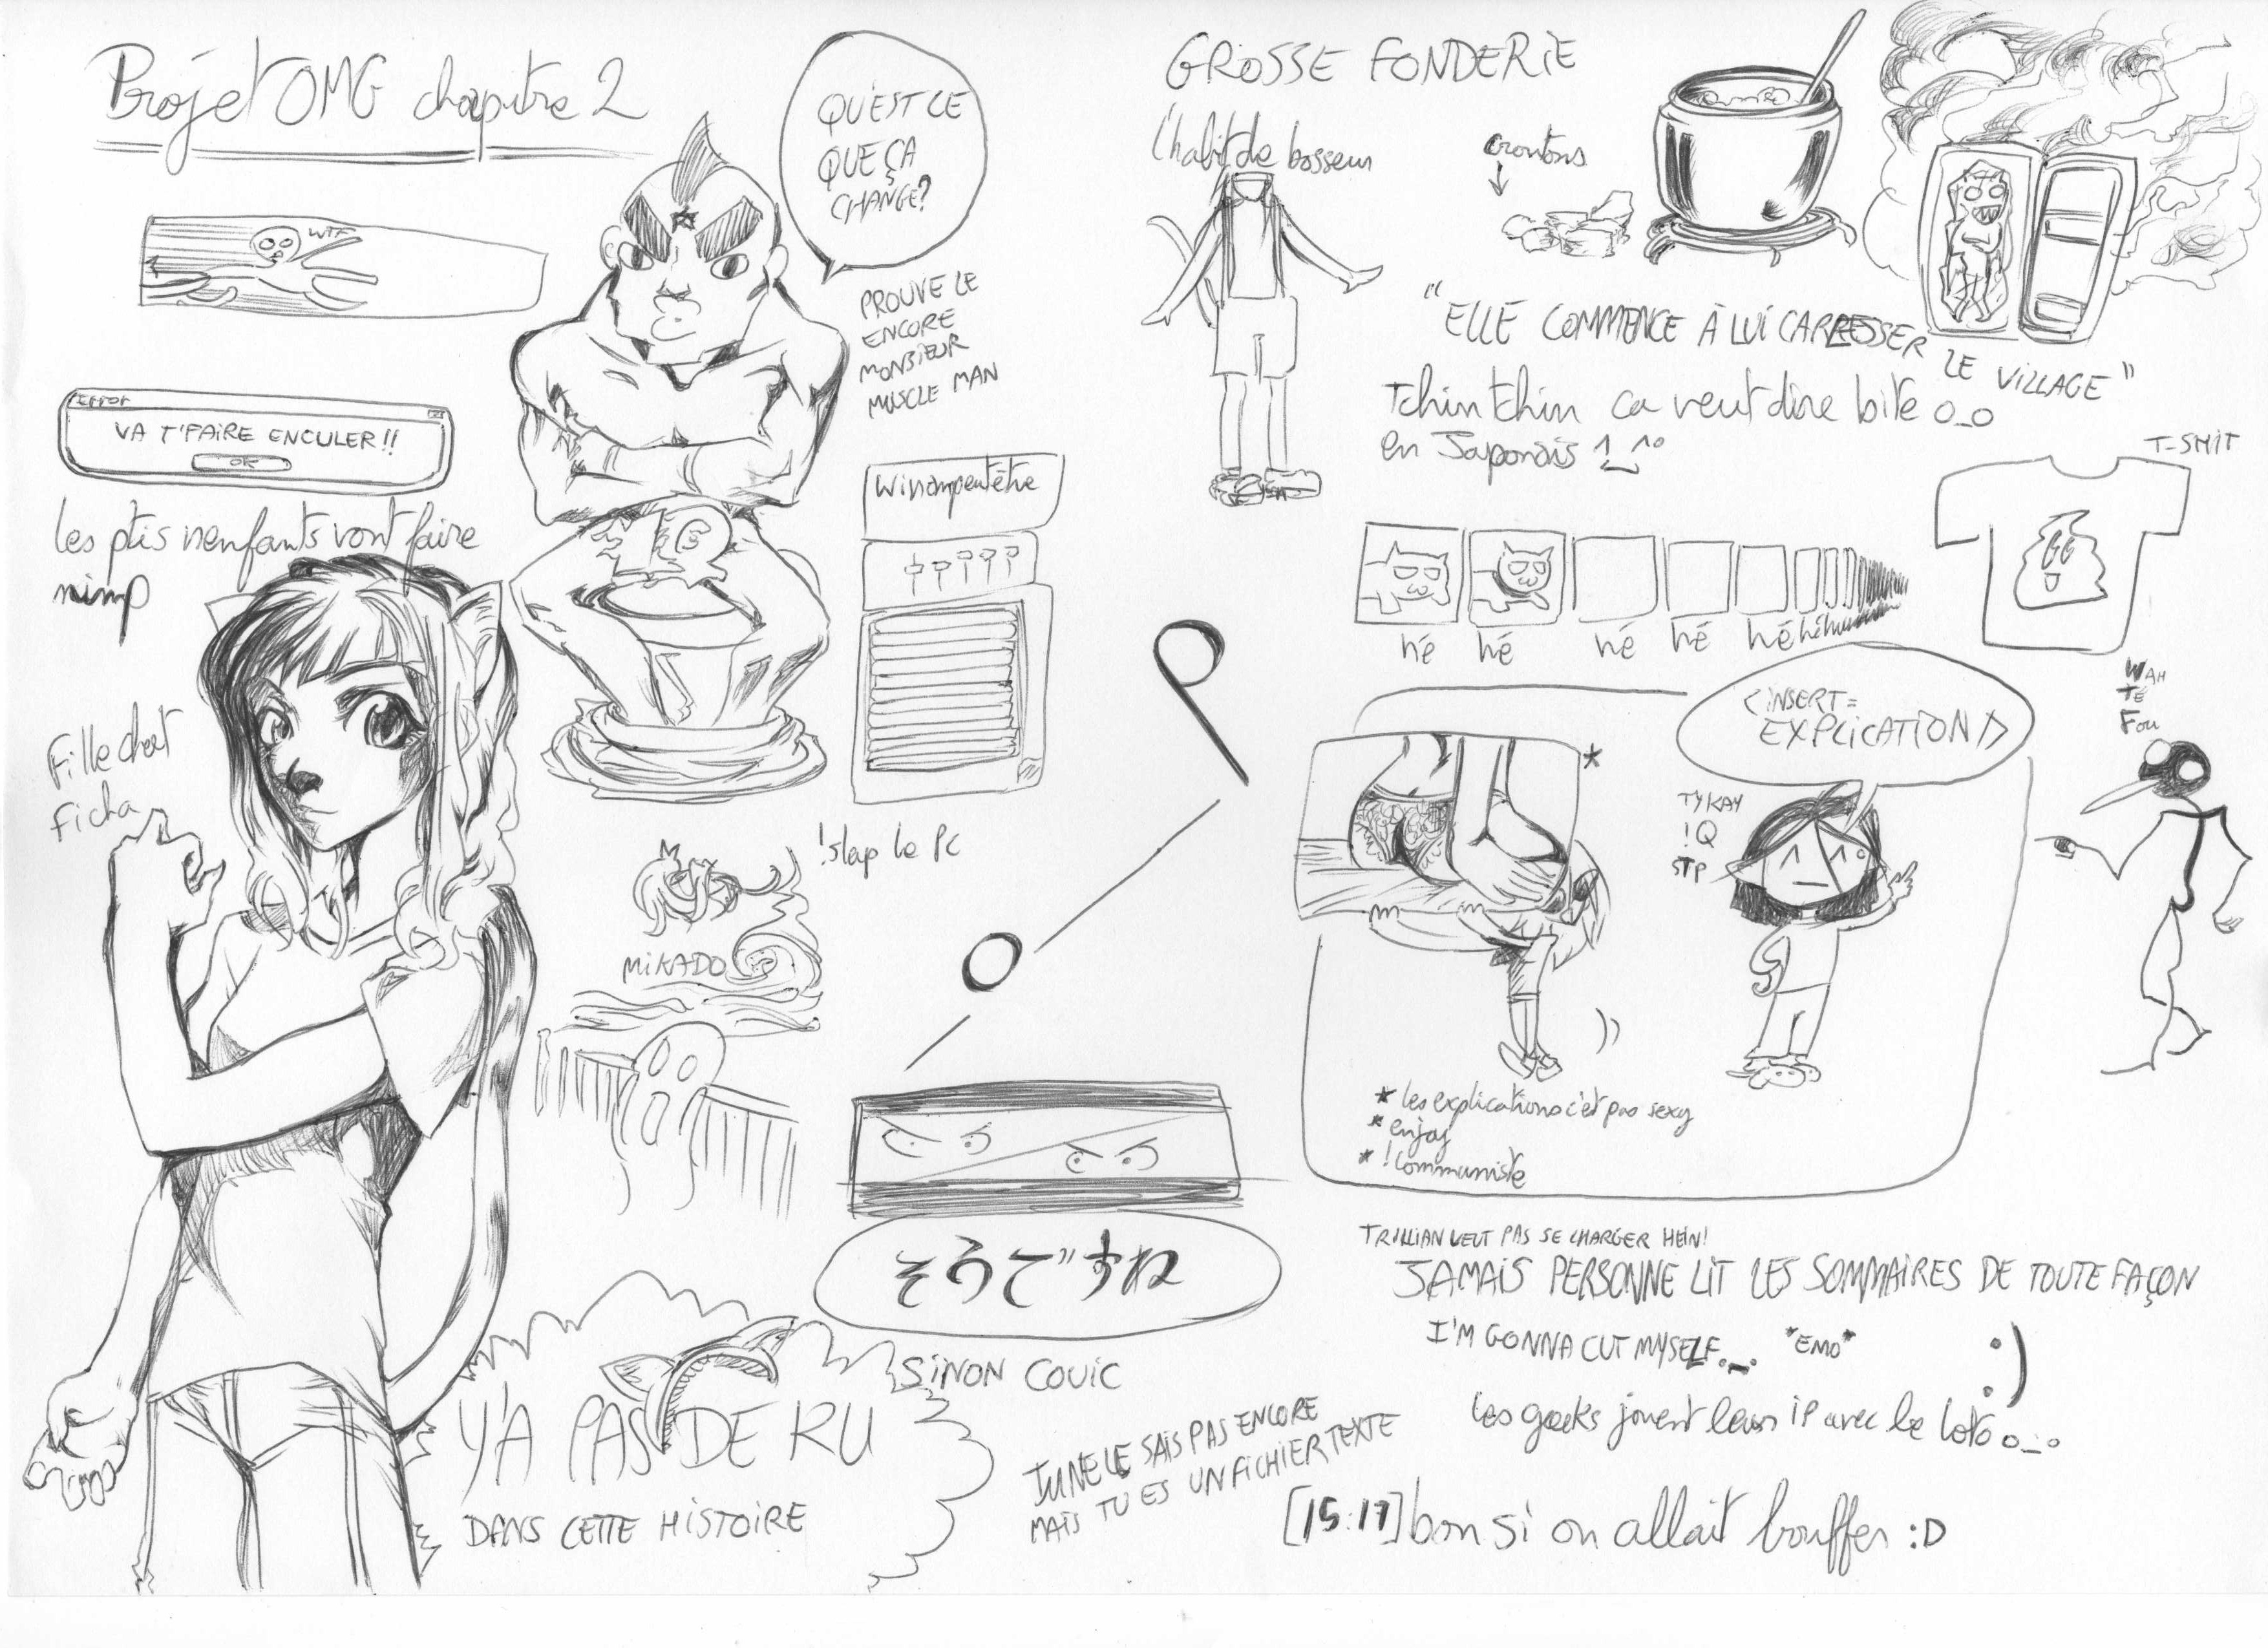 Projet OMG chapitre 2
QU'EST CE
QUE ÇA
CHANGE?
WTF
PROUVE LE
ENCORE
MONSIEUR
MUSCLE MAN
Error
VA T'FAIRE ENCULER!!
OK
les ptis nenfants vont faire
nimp
Winampeutêtre
Fille chat
ficha
!slap le Pc
MIKADO
そうですね
SINON COUIC
Y'A PAS DE RU
DANS CETTE HISTOIRE
TU NE LE SAIS PAS ENCORE
MAIS TU ES UN FICHIER TEXTE
GROSSE FONDERIE
l'habit de bosseur
croutons
"ELLE COMMENCE À LUI CARRESSER
LE VILLAGE"
Tchin tchin ca veut dire bite o_o
en Japonais 1_1°
T-SHIT
hé hé hé hé hé héhé
<INSERT=
EXPLICATION1>
WAH
TÉ
Fou
*
TYKAY
!Q
STP
* les explications c'est pas sexy
* enjoy
* !communiste
TRILLIAN VEUT PAS SE CHARGER HEIN!
JAMAIS PERSONNE LIT LES SOMMAIRES DE TOUTE FAÇON
I'M GONNA CUT MYSELF._. *EMO*
:)
Les geeks jouent leur IP avec le loto o_o
[15:17] bon si on allait bouffer :D